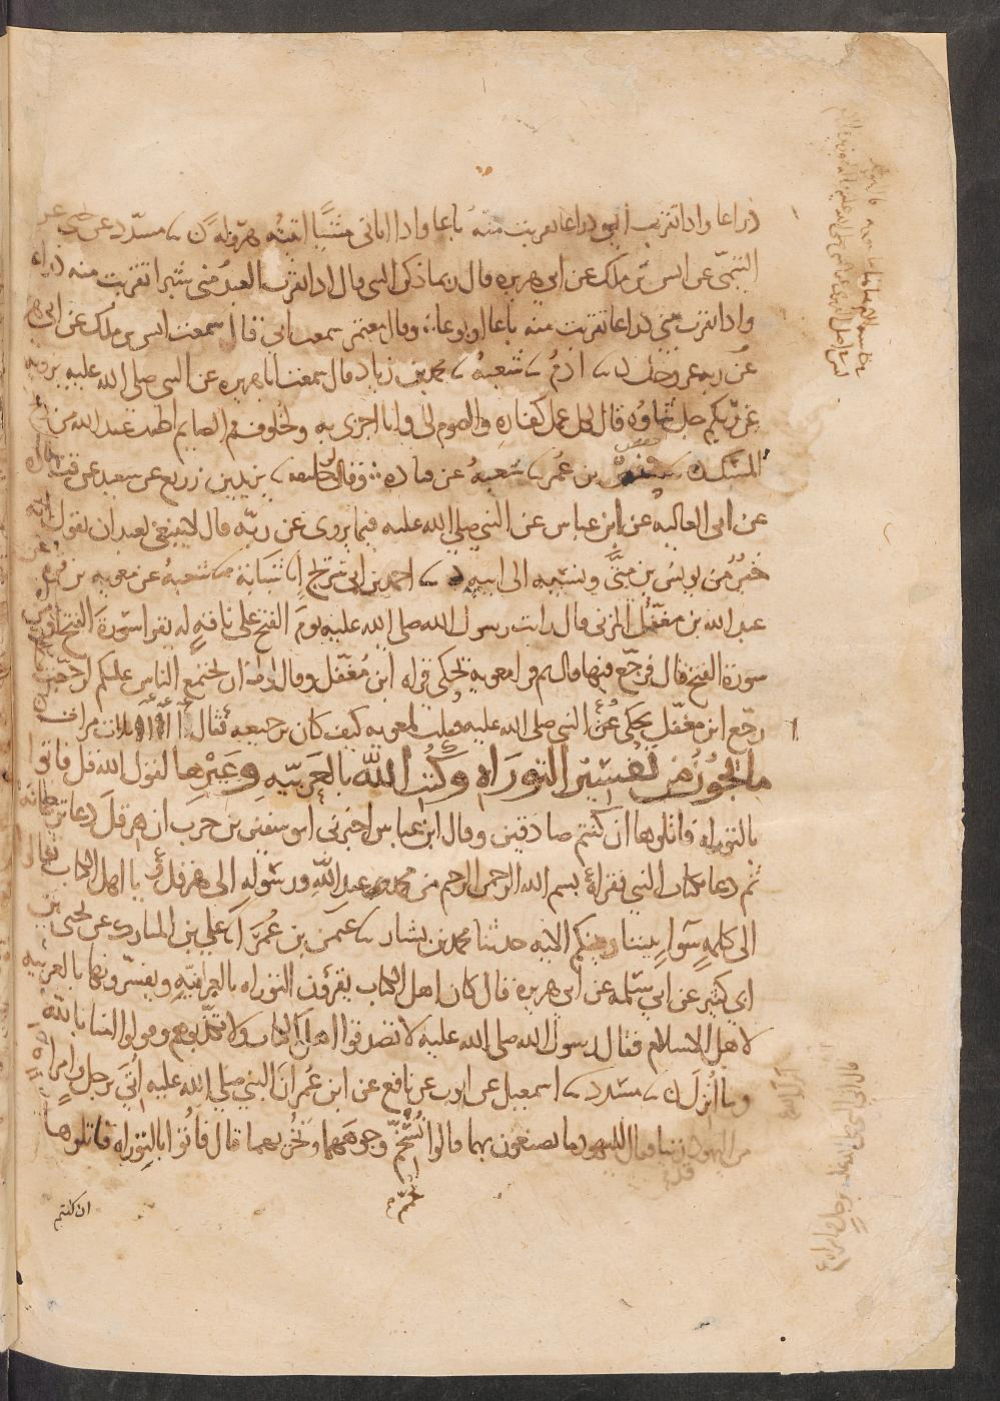 ذراعا واذا تقرب الي ذراعا تقربت منه باعا واذا اتاني مشيا اتيته هرولة ن مسدد عن يحيى عن
التيمي عن انس بن ملك عن ابي هريره قال ربما ذكر النبي قال اذا تقرب العبد مني شبرا تقربت منه ذراعا
واذا تقرب مني ذراعا تقربت منه باعا او بوعا وقال معتمر سمعت ابي قال سمعت انس بن ملك عن ابي هر
عن ربه عز وجل ادم شعبة محمد بن زياد قال سمعت ابا هريره عن النبي صلى الله عليه يرويه
عن ربكم جل ثناوه قال لكل عمل كفاره والصوم لي وانا اجزى به ولخلوف فم الصايم اطيب عند الله من ريح
المسك حفص بن عمر شعبة عن قتاده وقال لي خليفه يزيد بن زريع عن سعيد عن قتاده
عن ابي العاليه عن ابن عباس عن النبي صلى الله عليه فيما يروى عن ربه قال لا ينبغي لعبد ان يقول انه
خير من يونس بن متى ونسبه الى ابيه احمد بن ابي سريج انا شبابة شعبة عن معويه بن قره عن
عبد الله بن مغفل المزني قال رايت رسول الله صلى الله عليه يوم الفتح على ناقة له يقرا سورة الفتح او من
سورة الفتح قال فرجع فيها قال ثم قرا معوية يحكى قراه ابن مغفل وقال لولا ان يجتمع الناس عليكم لرجعت كما
رجع ابن مغفل يحكى النبي صلى الله عليه فقلت لمعويه كيف كان ترجيعه فقال آ آ آ ثلاث مرات
ما يجوز من تفسير التوراه وكتب الله بالعربيه وغيرها لقول الله قل فاتوا
بالتوراه فاتلوها ان كنتم صادقين وقال ابن عباس اخبرني ابو سفين بن حرب ان هرقل دعا ترجمانه
ثم دعا بكتاب النبي فقراه بسم الله الرحمن الرحيم من محمد عبد الله ورسوله الى هرقل و يا اهل الكتاب تعالوا
الى كلمه سوا بيننا وبينكم الايه حدثنا محمد بن بشار عثمن بن عمر انا علي بن المبارك عن يحيى بن
ابي كثير عن ابي سلمه عن ابي هريره قال كان اهل الكتاب يقرؤن التوراه بالعبرانيه ويفسرونها بالعربيه
لاهل الاسلام فقال رسول الله صلى الله عليه لا تصدقوا اهل الكتاب ولا تكذبوهم وقولوا امنا بالله
وما انزل مسدد اسمعيل عن ايوب عن نافع عن ابن عمر ان النبي صلى الله عليه اتي برجل وامراه
من اليهود زنيا فقال لليهود ما تصنعون بهما قالوا نسخم وجوههما ونخزيهما قال فاتوا بالتوراه فاتلوها
ان كنتم